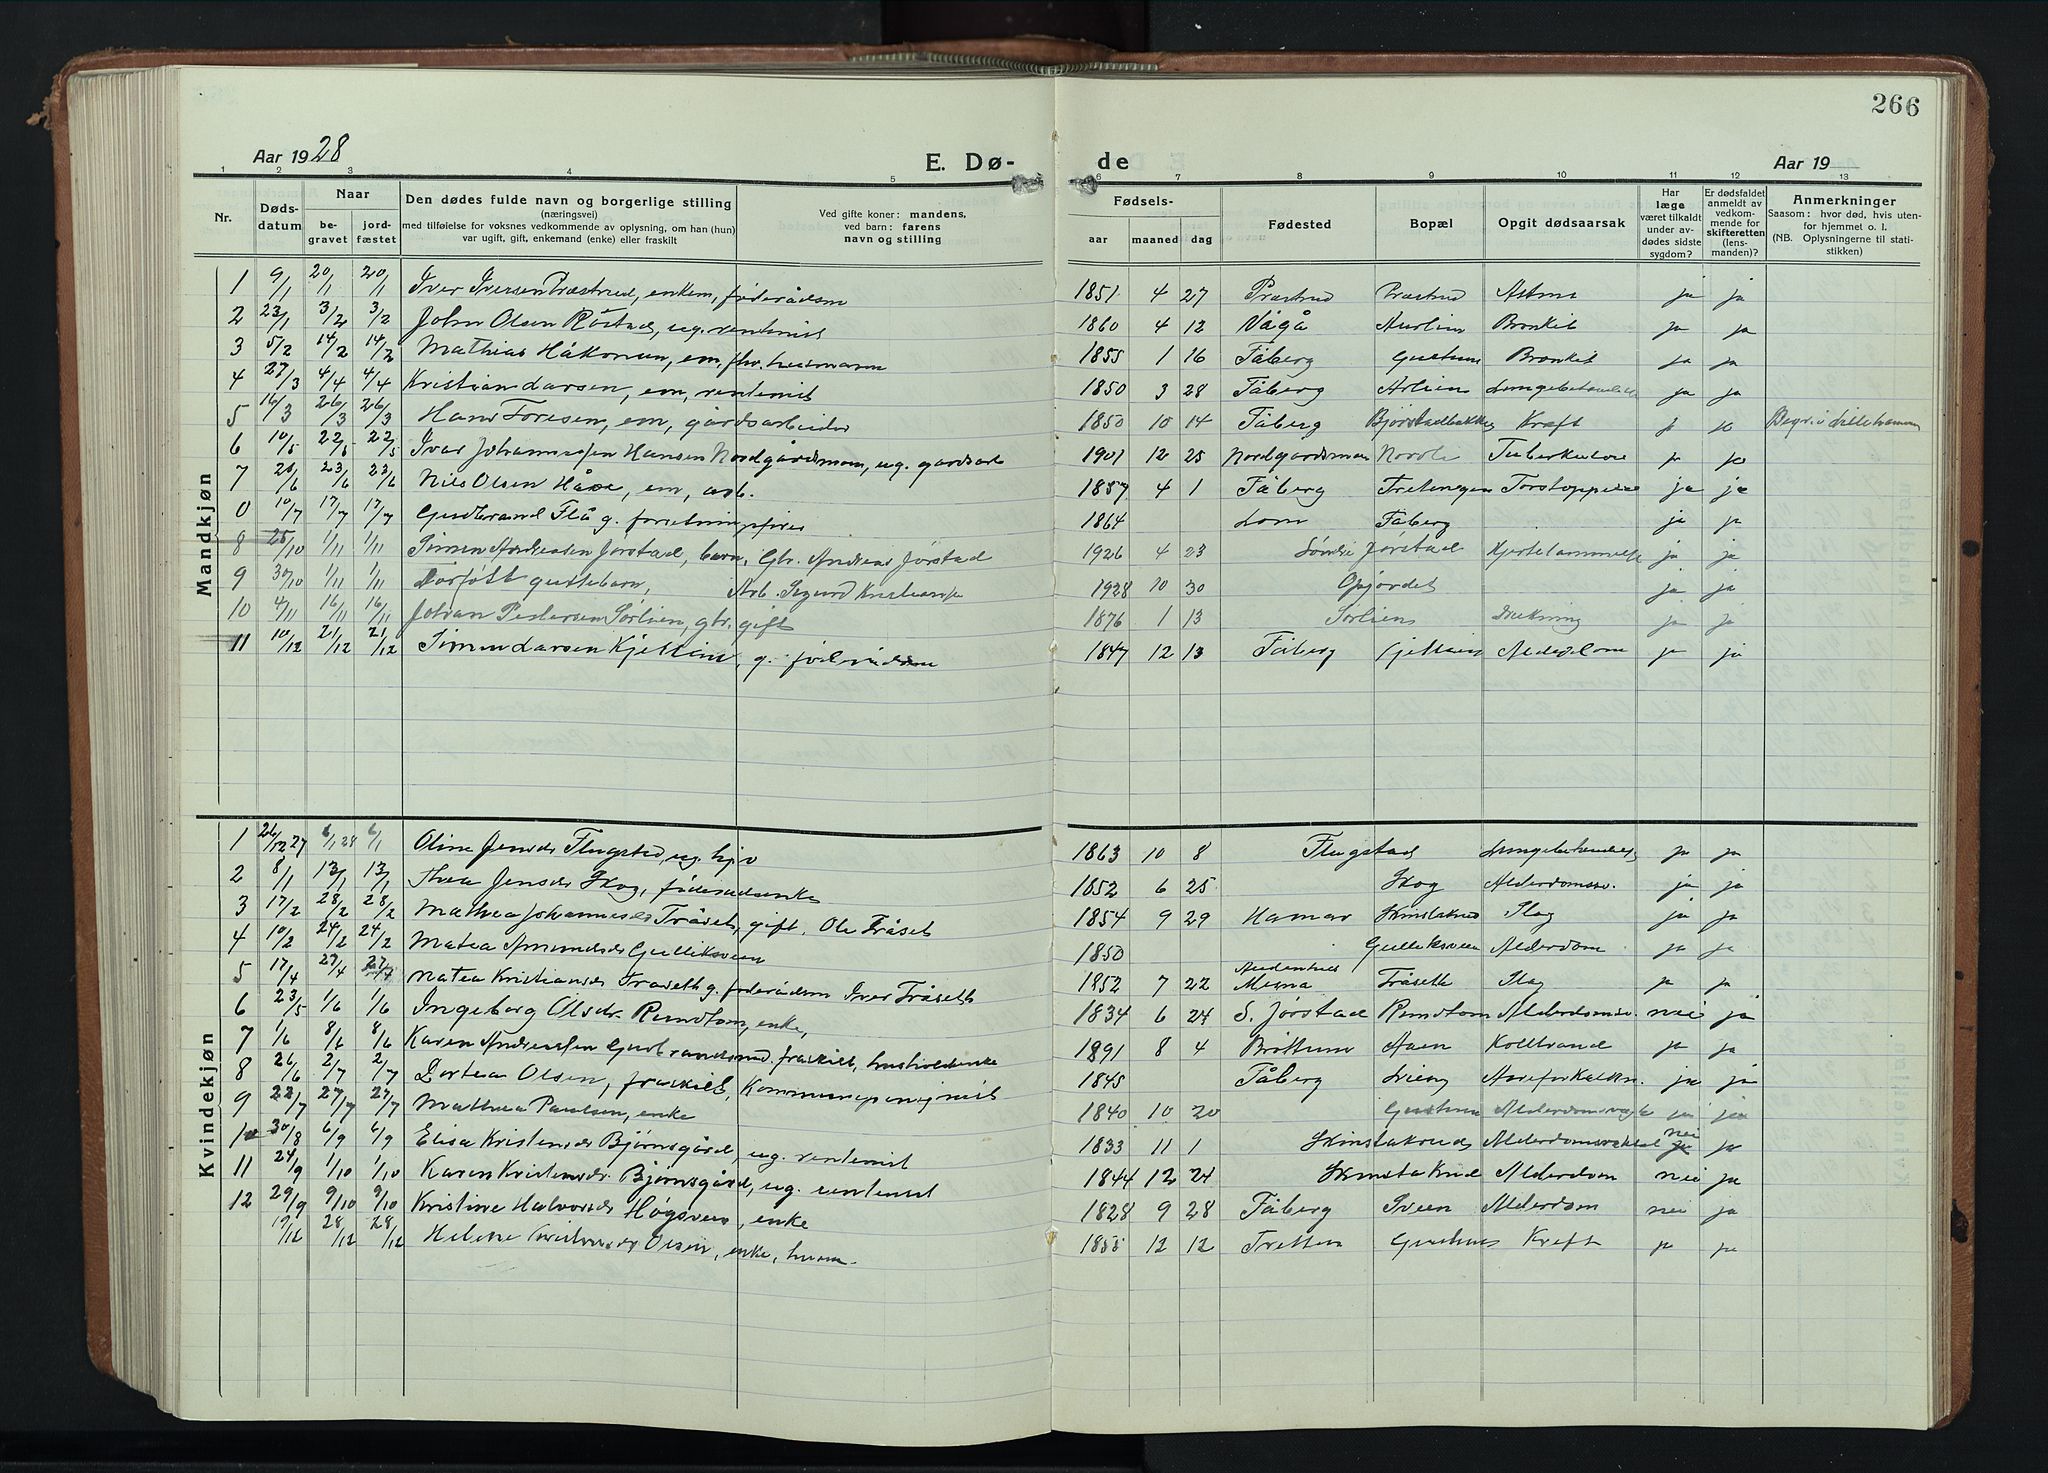 266
Aar 1928 E. Dø- de Aar 19
1 2 3 4 5 6 7 8 9 10 11 12 13
Nr. Døds-datum Naar begravet jordfæstet Den dødes fulde navn og borgerlige stilling (næringsvei) med tilføielse for voksnes vedkommende av oplysning, om han (hun) var ugift, gift, enkemand (enke) eller fraskilt Ved gifte koner: mandens, ved barn: farens navn og stilling Fødsels- aar maaned dag Fødested Bopæl Opgit dødsaarsak Har læge været tilkaldt under avdødes sidste sygdom? Er dødsfaldet anmeldt av vedkommende for skifteretten (lensmanden)? Anmerkninger Saasom: hvor død, hvis utenfor hjemmet o. l. (NB. Oplysningerne til statistikken)
Mandkjøn
1 9/1 20/1 20/1 Iver Iversen Præstrud, enkem, føderådsm 1851 4 27 Præstrud Præstrud Astma ja ja
2 23/1 3/2 3/2 John Olsen Røstad, ug. rentenist 1860 4 12 Vågå Aurlien Bronkit ja ja
3 5/2 14/2 14/2 Mathias Håkonsen, em, fhv. husmann 1855 1 16 Fåberg Bronkit ja ja
4 27/3 4/4 4/4 Kristian Larsen, em, rentenist 1850 3 28 Fåberg ja ja
5 16/3 26/3 26/3 Hans Toresen, em, gårdsarbeider 1850 10 14 Fåberg Bjørstadbakken Kræft ja ja Begr. i Lillehammer
6 10/5 22/5 22/5 Ivar Johannessen Hansen Nordgårdsmoen, ug. gardsarb 1901 12 25 Nordgardsmoen Tuberkulose ja ja
7 20/6 23/6 23/6 Nils Olsen em, arb. 1857 4 1 Fåberg Fretengen ja ja
0 10/7 17/7 17/7 Gudbrand Flå g. forretningsfører 1864 Lom Fåberg ja ja
8 25/10 1/11 1/11 Simen Andreassen Jørstad, barn, Gbr. Andreas Jørstad 1926 4 23 Søndre Jørstad ja ja
9 30/10 1/11 1/11 Dødfødt guttebarn, Arb. Sigurd Kristiansen 1928 10 30 Opjordet ja ja
10 4/11 16/11 16/11 Johan Pedersen Sørlien, gbr. gift 1876 1 13 Sørlien ja ja
11 10/12 21/12 21/12 Simen Larsen Kjellien, g. føderådsm 1847 12 13 Fåberg Gjellien Alderdom ja ja
Kvindekjøn
1 26/12 27 6/1 28 6/1 Oline Jensdr Flugstad, ug. hjv 1863 10 8 Flugstad Lungebetændelse ja ja
2 8/1 13/1 13/1 Thea Jensdr Skog, føderådsenke 1852 6 25 Skog Alderdomssv. ja ja
3 17/2 28/2 28/2 Mathea Johannesdr Fråset, gift. Ole Fråset 1854 9 29 Hamar Skinstakrud Slag ja ja
4 10/2 24/2 24/2 Matea Amundsdr Gulliksveen 1850 Gulliksveen Alderdom ja ja
5 17/4 27/4 27/4 Matea Kristiansdr Fraseth g. føderådsm Iver Fråseth 1852 7 22 Mesna Fråseth Slag ja ja
6 23/5 1/6 1/6 Ingeborg Olsdr. Rundtom, enke, 1834 6 24 S. Jørstad Rundtom Alderdomssv. nei ja
7 1/6 8/6 8/6 Karen Andreassen Gudbrandsrud. fraskilt, husholderske 1891 8 4 Brøttum Aaen Koldbrand ja ja
8 26/6 2/7 2/7 Dortea Olsen, fraskilt, Kommunepensjonist 1845 Fåberg Lieng Aareforkalkn. ja ja
9 22/7 27/7 27/7 Mathea Paulsen, enke 1840 10 20 Alderdomssvakhet ja ja
10 30/8 6/9 6/9 Elisa Kristensdr Bjørnsgård, ug. rentenist 1833 11 1 Skinstakrud Alderdomssvakhet nei ja
11 24/9 1/10 1/10 Karen Kristensdr. Bjørnsgård, ug. rentenist 1844 12 24 Skinstakrud Alderdom nei ja
12 29/9 9/10 9/10 Kristine Halvorsdr Høgsveen, enke 1828 9 28 Fåberg Sveen Alderdom nei ja
19/12 28/12 28/12 Helene Olsen, enke, husm. 1855 12 12 Tretten Kreft ja ja